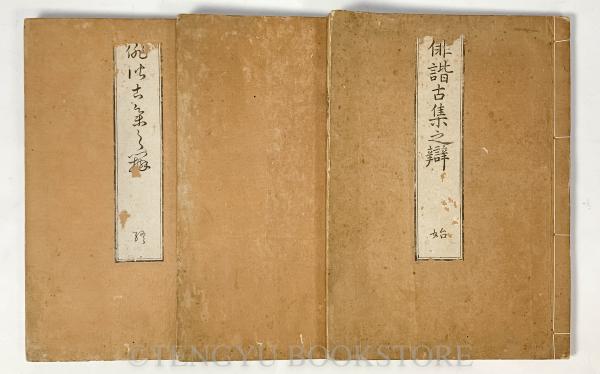 俳諧古集之辯
始
俳諧古集之辯
終
©TENGYU BOOKSTORE